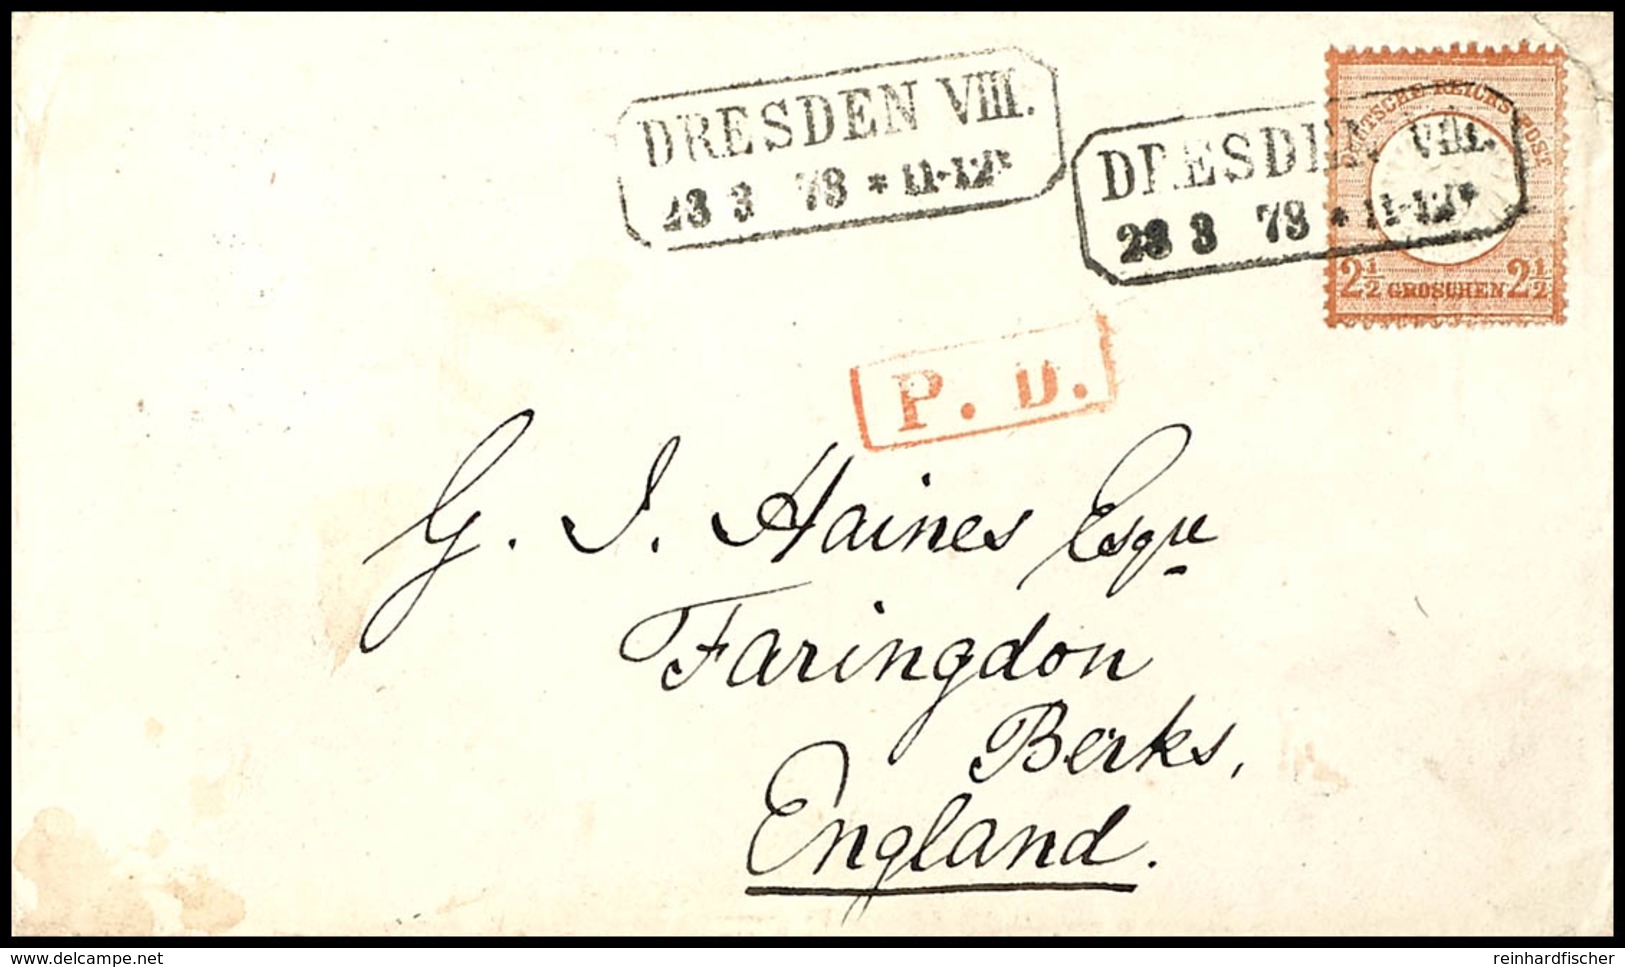 DRESDEN VIII.
23 3 73 * 11-12
DRESDEN VIII.
23 3 73 * 11-12
DEUTSCHE REICHS POST
2½ GROSCHEN 2½
P. D.
G. J. Haines Esqre
Faringdon
Berks,
England.
www.delcampe.net
reinhardfischer